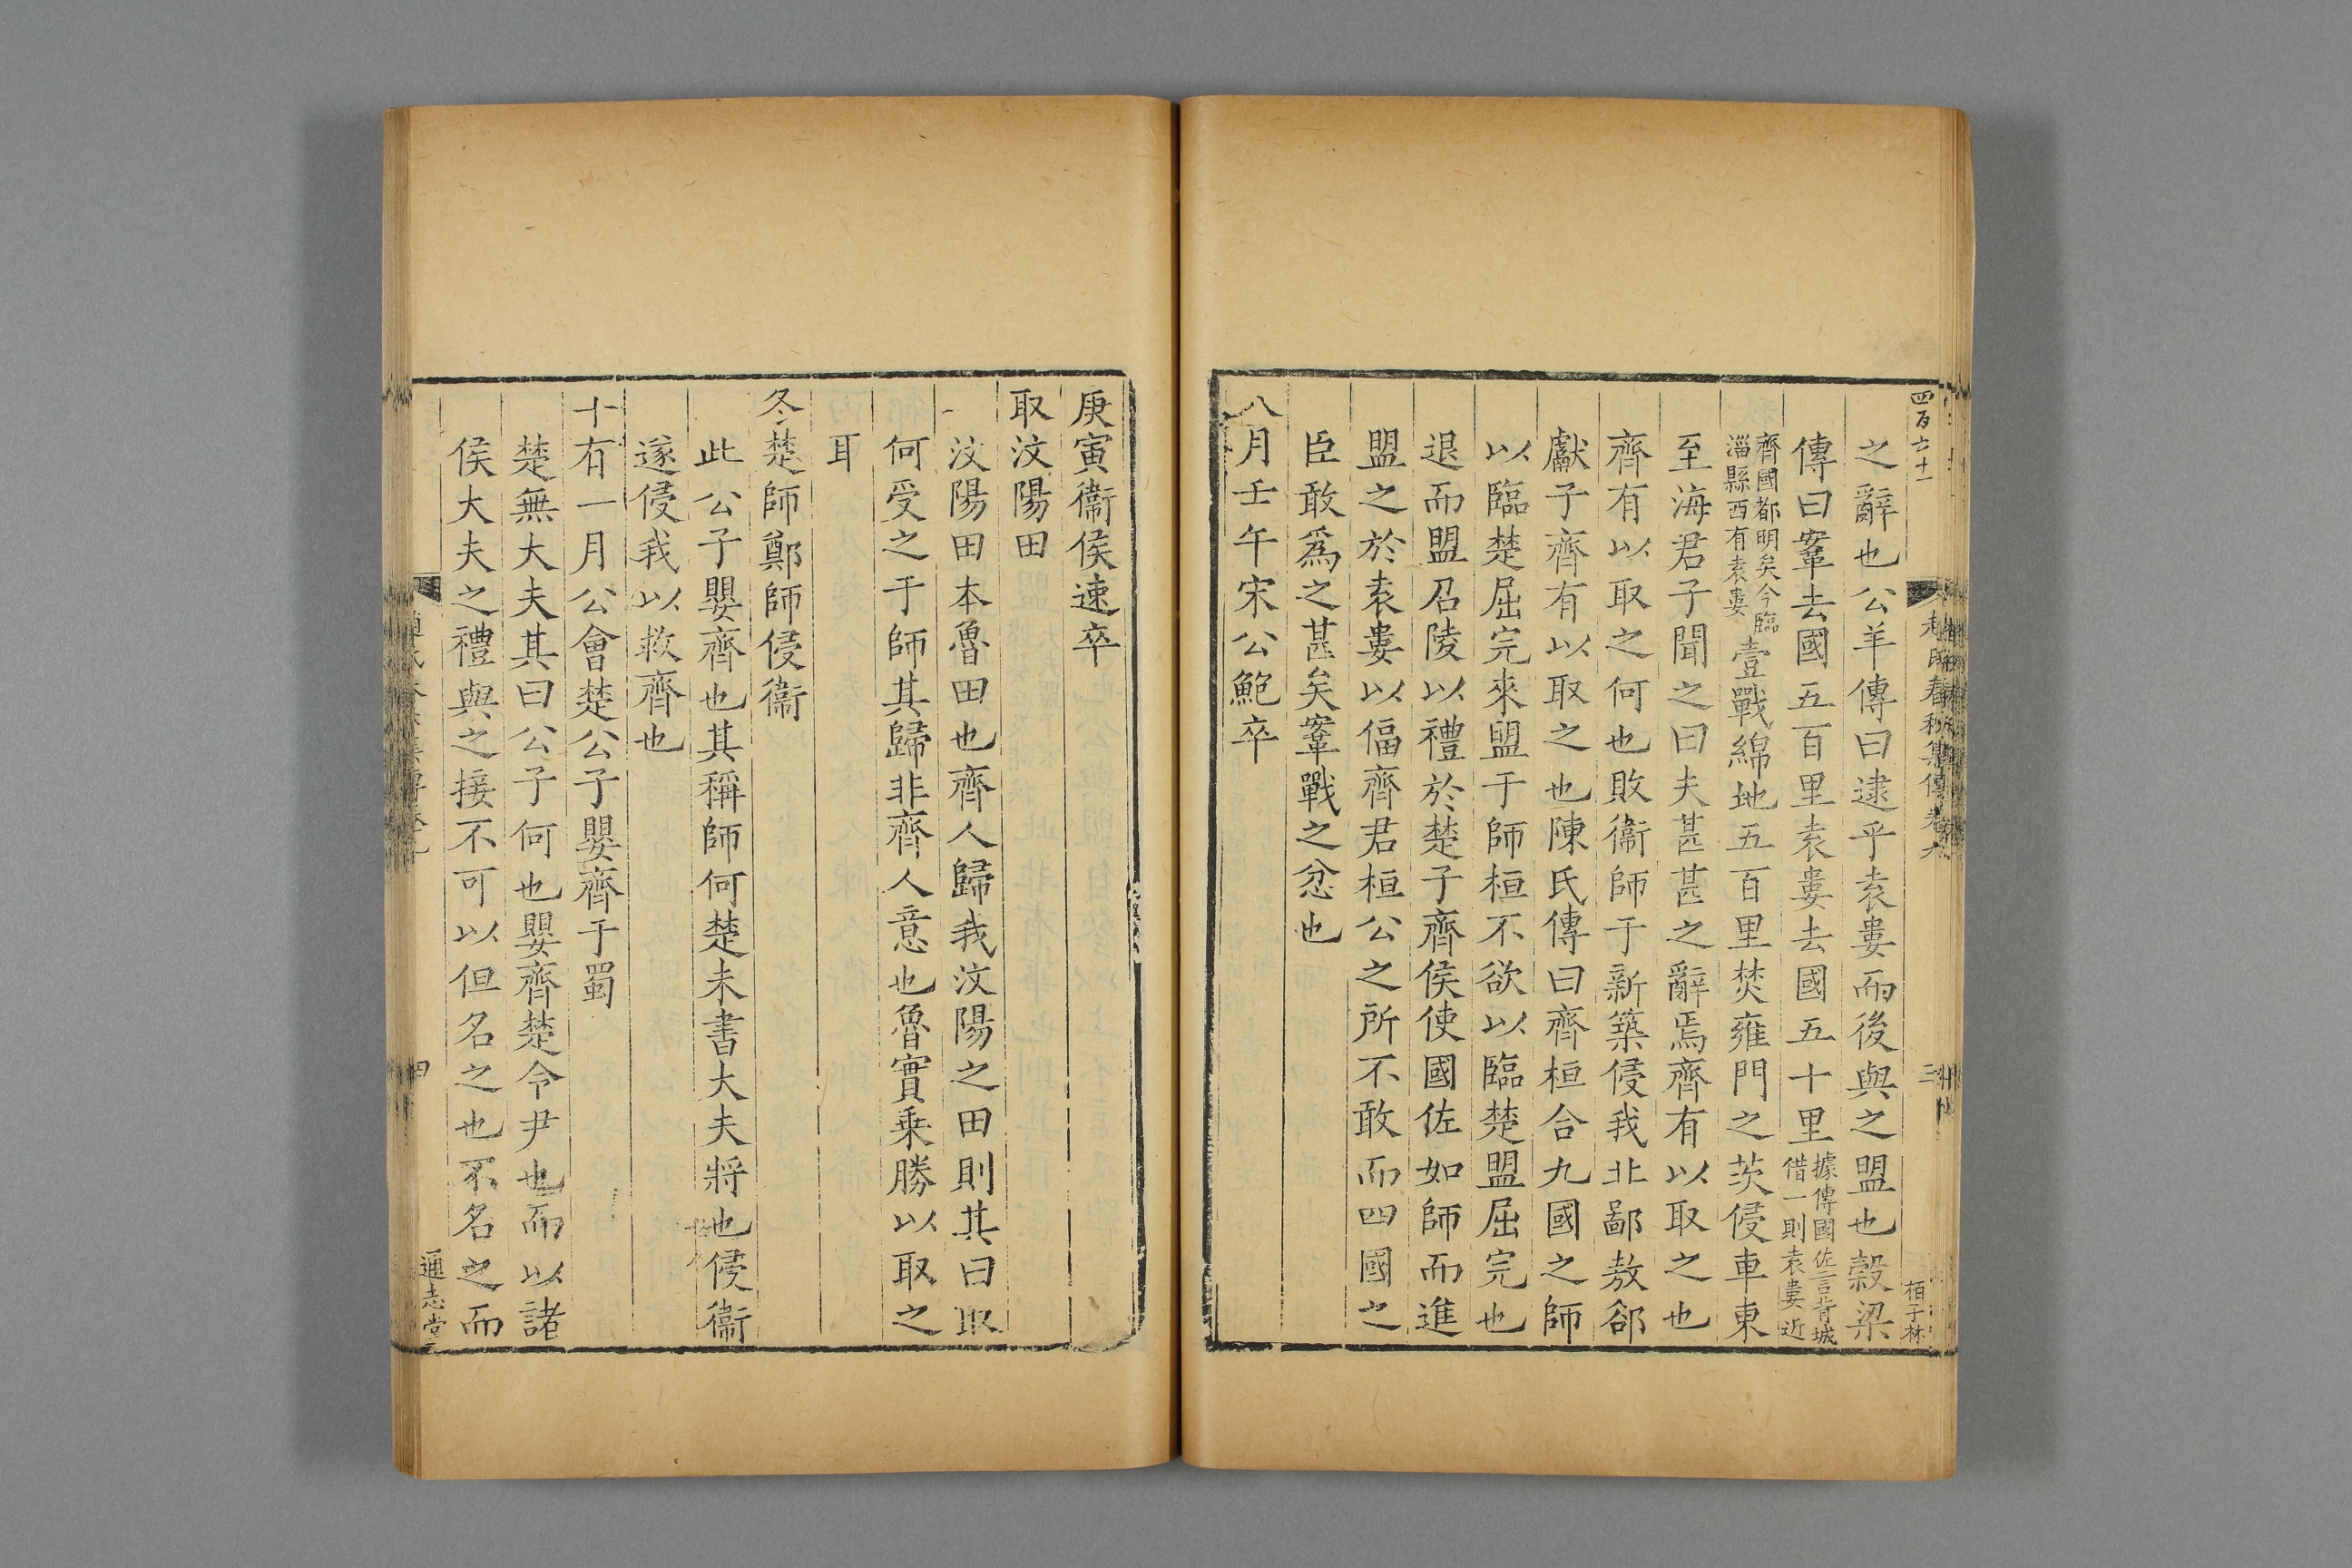 四百六十一
趙氏春秋集傳卷九
三
栢子林
之辭也公羊傳曰逮乎袁婁而後與之盟也穀梁
傳曰鞌去國五百里袁婁去國五十里據傳國佐言背城借一則袁婁近
齊國都明矣今臨淄縣西有袁婁壹戰綿地五百里焚雍門之茨侵車東
至海君子聞之曰夫甚甚之辭焉齊有以取之也
齊有以取之何也敗衞師于新築侵我北鄙敖郤
獻子齊有以取之也陳氏傳曰齊桓合九國之師
以臨楚屈完來盟于師桓不欲以臨楚盟屈完也
退而盟召陵以禮於楚子齊侯使國佐如師而進
盟之於袁婁以偪齊君桓公之所不敢而四國之
臣敢爲之甚矣鞌戰之忿也
八月壬午宋公鮑卒
庚寅衞侯速卒
取汶陽田
汶陽田本魯田也齊人歸我汶陽之田則其曰取
何受之于師其歸非齊人意也魯實乗勝以取之
耳
冬楚師鄭師侵衞
此公子嬰齊也其稱師何楚未書大夫將也侵衞
遂侵我以救齊也
十有一月公會楚公子嬰齊于蜀
楚無大夫其曰公子何也嬰齊楚令尹也而以諸
侯大夫之禮與之接不可以但名之也不名之而
四
通志堂